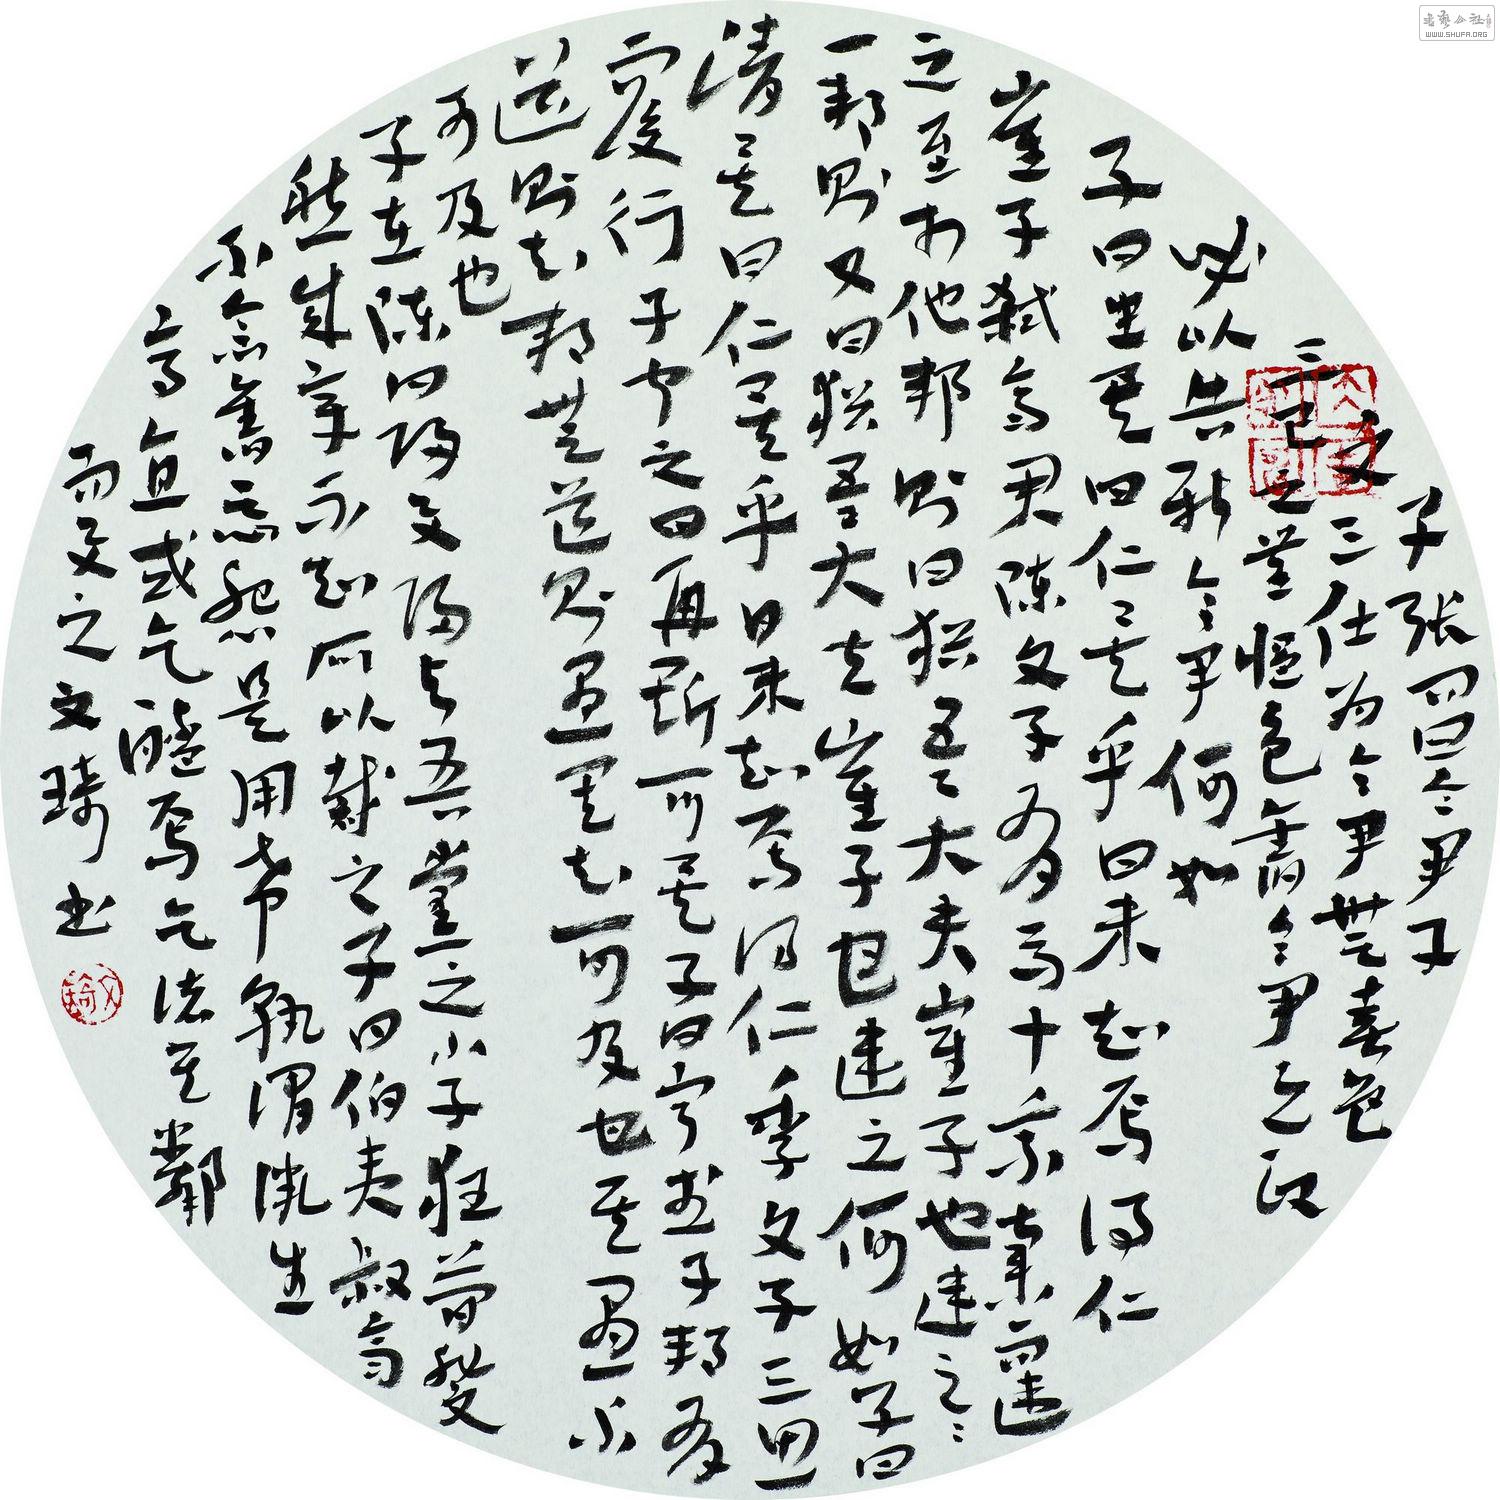 子張問曰令尹子
文三仕为令尹無喜色
三已之無愠色舊令尹之政
必以告新令尹何如
子曰忠矣曰仁矣乎曰未知焉得仁
崔子弑齊君陳文子有馬十乘棄而違
之至於他邦則曰猶吾大夫崔子也違之〻
一邦則又曰猶吾大夫崔子也違之何如子曰
清矣曰仁矣乎曰未知焉得仁季文子三思
而後行子聞之曰再斯可矣子曰甯武子邦有
道則知邦無道則愚其知可及也其愚不
可及也
子在陳曰歸与歸与吾黨之小子狂簡斐
然成章不知所以裁之子曰伯夷叔齊
不念舊惡怨是用希孰謂微生
高直或乞醯焉乞諸其鄰
而与之文琦书
文琦
书艺公社
WWW.SHUFA.ORG